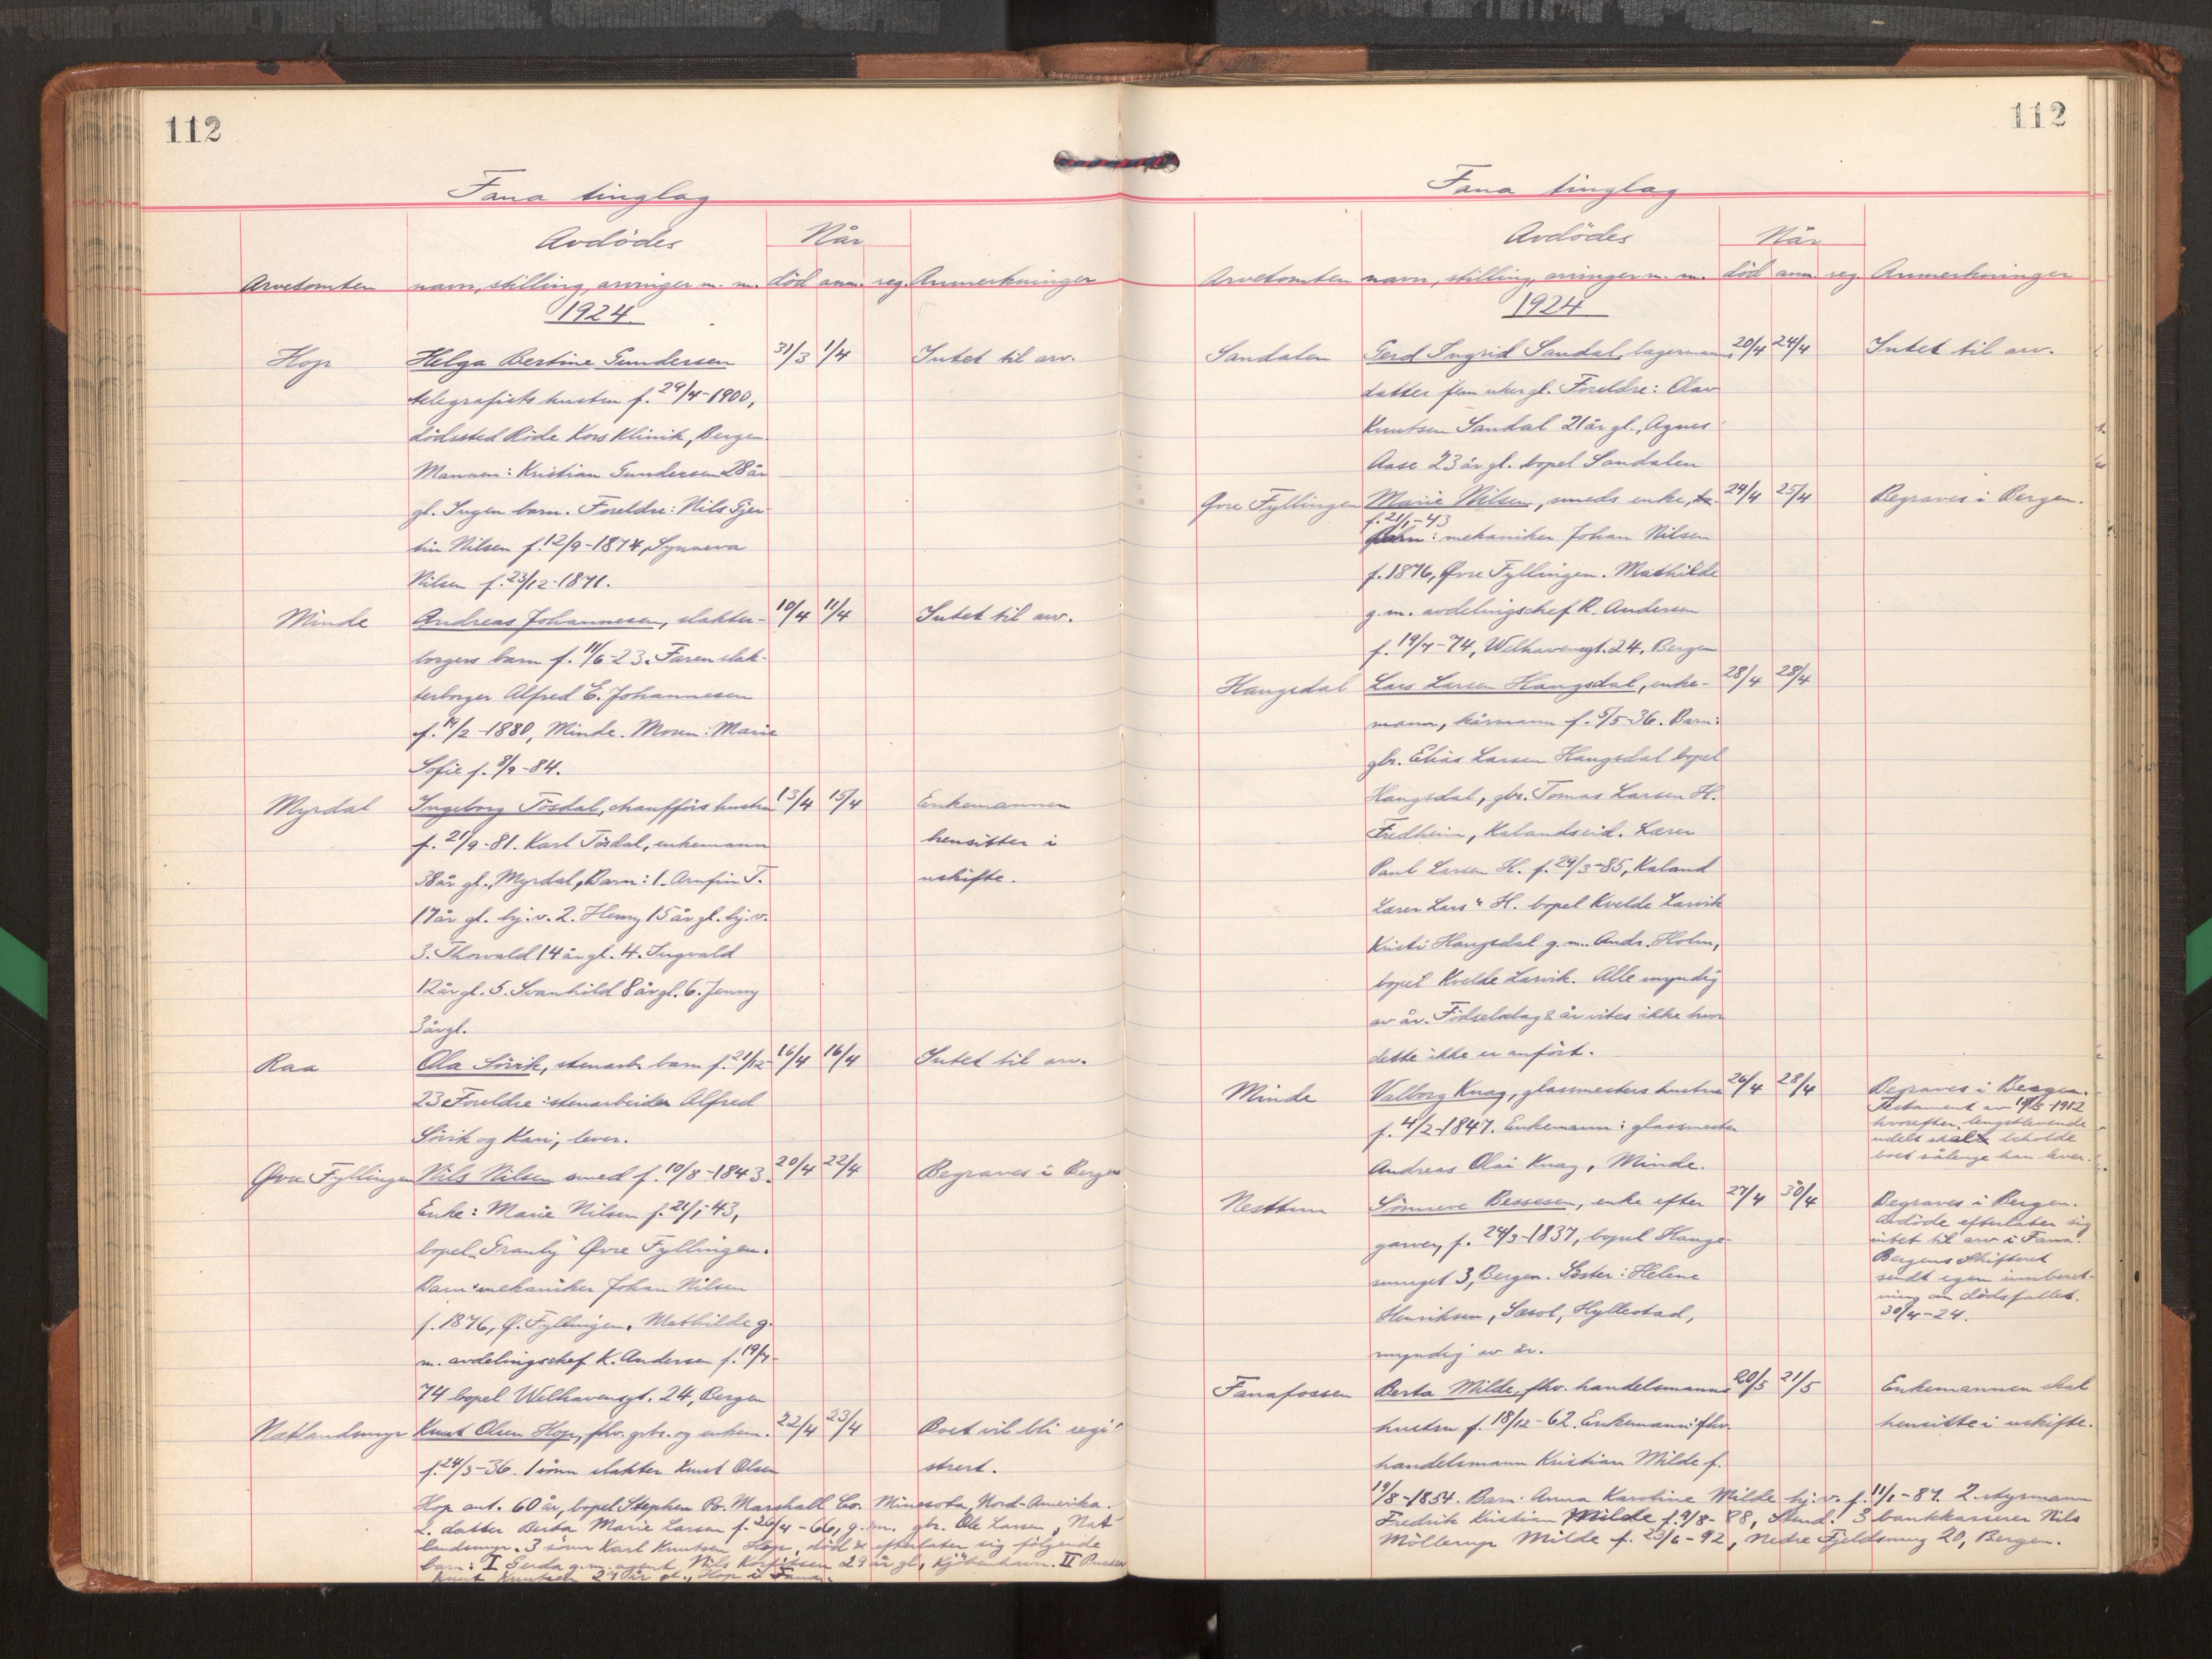 112
Fana tinglag
Avdödes
Når
Arvetomten navn, stilling, arvinger m. m. död anm. reg. Anmerkninger
1924
Hop Helga Bertine Gundersen 31/3 1/4 Intet til arv.
telegrafists hustru f. 29/4-1900,
dödssted Röde Kors Klinik, Bergen
Mannen: Kristian Gundersen 28 år
gl. Ingen barn. Foreldre: Nils Gjer
tin Nilsen f. 12/9-1874, Synneva
Nilsen f. 23/12-1871.
Minde Andreas Johannesen, slakter- 10/4 11/4 Intet til arv.
borgers barn f. 11/6-23. Faren slak-
terborger Alfred E. Johannesen
f. 19/2-1880, Minde. Moren: Marie
Sofie f. 8/9-84.
Myrdal Ingeborg Tösdal, chaufförs hustru 13/4 15/4 Enkemannen
f. 21/9-81. Karl Tösdal, enkemann hensitter i
38 år gl., Myrdal, Barn: 1. Arnfin T. uskifte.
17 år gl. hj. v. 2. Henry 15 år gl. hj. v.
3. Thorvald 14 år gl. 4. Ingvald
12 år gl. 5. Svanhild 8 år gl. 6. Jenny
3 år gl.
Raa Ola Sörik, stenarb. barn f. 21/12- 16/4 16/4 Intet til arv.
23 Foreldre: stenarbeider Alfred
Sörik og Kari, lever.
Øvre Fyllingen Nils Nilsen smed f. 10/8-1843. 20/4 22/4 Begraves i Bergen
Enke: Marie Nilsen f. 21/1-43,
bopel „Granly" Øvre Fyllingen.
Barn: mekaniker Johan Nilsen
f. 1876, Ø. Fyllingen. Mathilde g.
m. avdelingschef K. Andersen f. 19/7-
74 bopel Welhavensgt. 24, Bergen
Natlandsmyr Knut Olsen Hop, fhv. gbr. og enkem. 22/4 23/4 Boet vil bli regi-
f. 24/3-36. 1 sönn slakter Knut Olsen strert.
Hop ant. 60 år, bopel Stephen Po. Marshall Co. Minesota, Nord-Amerika.
2. datter Berta Marie Larsen f. 26/4-66, g. m. gbr. Ole Larsen, Nat
landsmyr. 3 sönn Karl Knutsen Hop, död & efterlater sig følgende
barn: I Gerda g. m. agent Nils 29 år gl, Kjöbenhavn. II
Knut Knutsen 24 år gl., Hop i Fana.
112
Fana tinglag
Avdödes
Når
Arvetomten navn, stilling, arvinger m. m. död anm. reg. Anmerkninger
1924
Sandalen Gerd Ingrid Sandal, lagermanns 20/4 24/4 Intet til arv.
datter fem uker gl. Foreldre: Olav
Knutsen Sandal 21 år gl., Agnes
Aase 23 år gl. bopel Sandalen
Øvre Fyllingen Marie Nilsen, smeds enke, 24/4 25/4 Begraves i Bergen.
f. 21/1-43
Barn: mekaniker Johan Nilsen
f. 1876, Øvre Fyllingen. Mathilde
g. m. avdelingschef K. Andersen
f. 19/7-74, Welhavensgt. 24, Bergen
Haugsdal Lars Larsen Haugsdal, enke- 28/4 28/4
mann, kårmann f. 5/5-36. Barn:
gbr. Elias Larsen Haugsdal bopel
Haugsdal, gbr. Tomas Larsen H.
Fredheim, Kalandseid. Lærer
Paul Larsen H. f. 29/3-85, Kaland
Lærer Lars " H. bopel Kvelde Larvik
Kristi Haugsdal g. m. Andr. Holm,
bopel Kvelde Larvik. Alle myndig
av år. Födselsdag & år vites ikke hvor
dette ikke er anfört.
Minde Valborg Knag, glassmesters hustru 26/4 28/4 Begraves i Bergen.
f. 4/2-1847. Enkemann: glassmester
Andreas Olai Knag, Minde.
Testament av 19/5-1912
hvorefter lengstlevende
udelt skal beholde
boet sålenge han lever.
Nesttun Sönneve Bessesen, enke efter 27/4 30/4 Begraves i Bergen.
garver, f. 24/3-1837, bopel Hauge-
smuget 3, Bergen. Söster: Helene
Henriksen, Hyllestad,
myndig av år.
Avdöde efterlater sig
intet til arv i Fana.
Bergens Skifteret
sendt egen innberet-
ning om dödsfallet.
30/4-24.
Fanafossen Berta Milde, fhv. handelsmanns 20/5 21/5 Enkemannen skal
hustru f. 18/12-62. Enkemann: fhv. hensitte i uskifte.
handelsmann Kristian Milde f.
19/8-1854. Barn: Anna Karoline Milde hj. v. f. 11/1-87. 2. styrmann
Fredrik Kristian Milde f. 9/8-88, Smd. 3 bankkasserer Nils
Möllerup Milde f. 23/6-92, Nedre Fjeldsmug 20, Bergen.